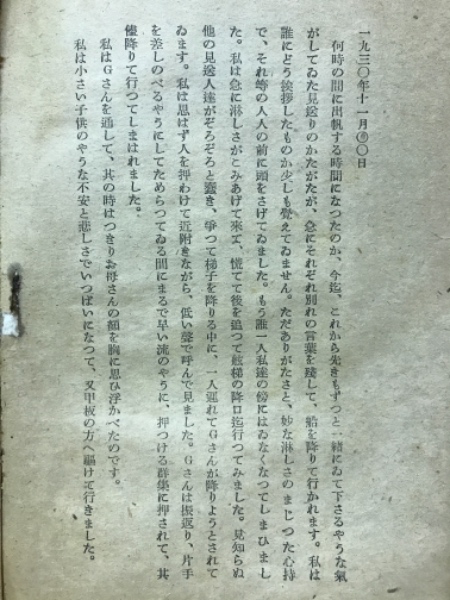 一九三〇年十一月〇〇日
何時の間に出帆する時間になつたのか、今迄、これから先きもずつと一緒にゐて下さるやうな氣
がしてゐた見送りのかたがたが、急にそれぞれ別れの言葉を殘して、船を降りて行かれます。私は
誰にどう挨拶したものか少しも覺えてゐません。ただありがたさと、妙な淋しさのまじつた心持
で、それ等の人人の前に頭をさげてゐました。もう誰一人私達の傍にはゐなくなつてしまひまし
た。私は急に淋しさがこみあげて來て、慌てて後を追つて舷梯の降口迄行つてみました。見知らぬ
他の見送人達がぞろぞろと蠢き、爭つて梯子を降りる中に、一人遲れてGさんが降りようとされて
ゐます。私は思はず人を押わけて近附きながら、低い聲で呼んで見ました。Gさんは振返り、片手
を差しのべるやうにしてためらつてゐる間にまるで早い流のやうに、押つける群集に押されて、其
儘降りて行つてしまはれました。
私はGさんを通して、其の時はつきりお母さんの顏を胸に思ひ浮かべたのです。
私は小さい子供のやうな不安と悲しさでいつぱいになつて、又甲板の方へ驅けて行きました。